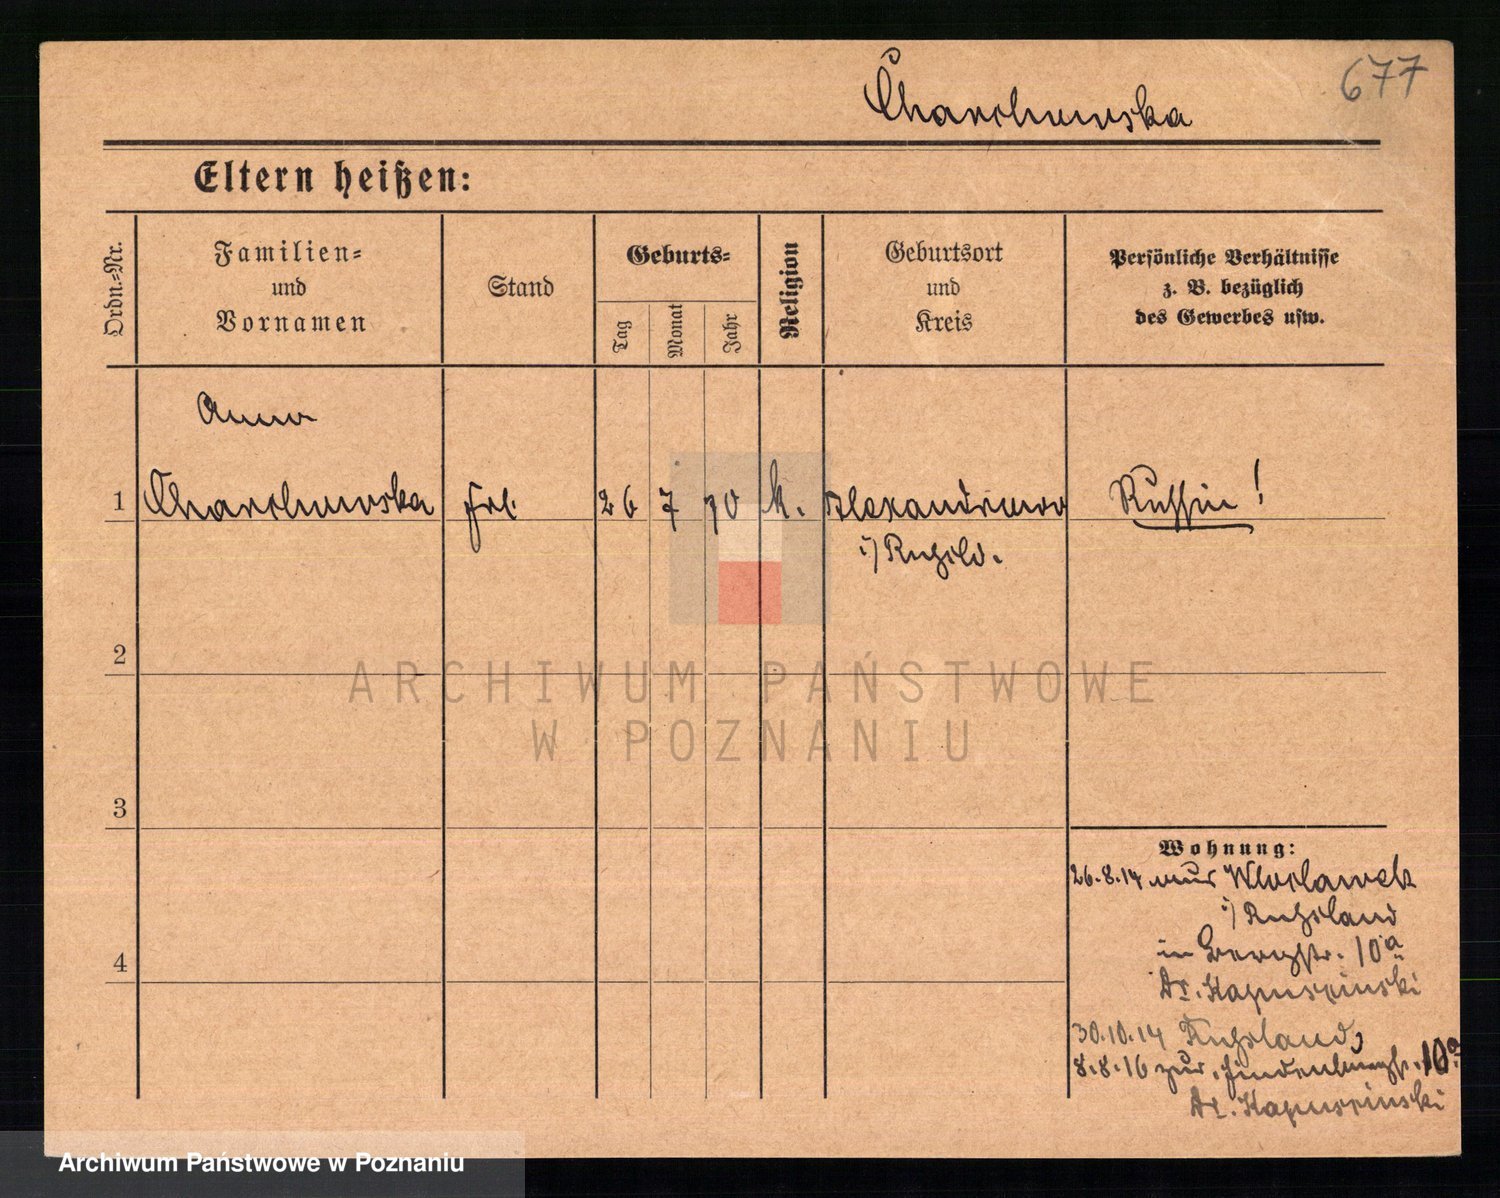 677
Charchurska
Eltern heißen:
Ordn.-Nr.
Familien-
und
Vornamen
Stand
Geburts-
Tag
Monat
Jahr
Religion
Geburtsort
und
Kreis
Persönliche Verhältnisse
z. B. bezüglich
des Gewerbes usw.
Anna
1 Frl. 26 7 70 k. Russin!
i/ Rußld.
2
3
4
Wohnung:
26.8.14 aus Wloclawek
i/ Rußland
in Bergstr. 10a
Dr. Kapuscinski
30.10.14 Rußland,
8.8.16 zur. Hindenburgstr. 10a
Dr. Kapuscinski
ARCHIWUM PAŃSTWOWE
W POZNANIU
Archiwum Państwowe w Poznaniu